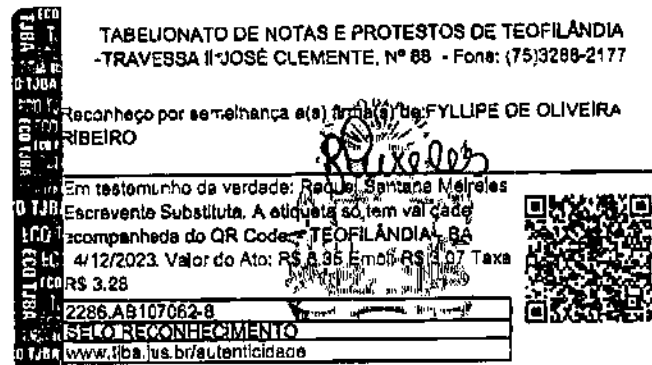 TABELIONATO DE NOTAS E PROTESTOS DE TEOFILÂNDIA
-TRAVESSA II JOSÉ CLEMENTE, Nº 88 - Fone: (75)3286-2177
Reconheço por semelhança a(s) firma(s) de:FYLLIPE DE OLIVEIRA
RIBEIRO
Em testemunho da verdade: Raquel Santana Meireles
Escrevente Substituta. A etiqueta só tem validade
acompanhada do QR Code. TEOFILÂNDIA, BA
4/12/2023. Valor do Ato: R$ 6.35 Emol: R$ 3.07 Taxa
R$ 3.28
2286.AB107062-8
SELO RECONHECIMENTO
www.tjba.jus.br/autenticidade